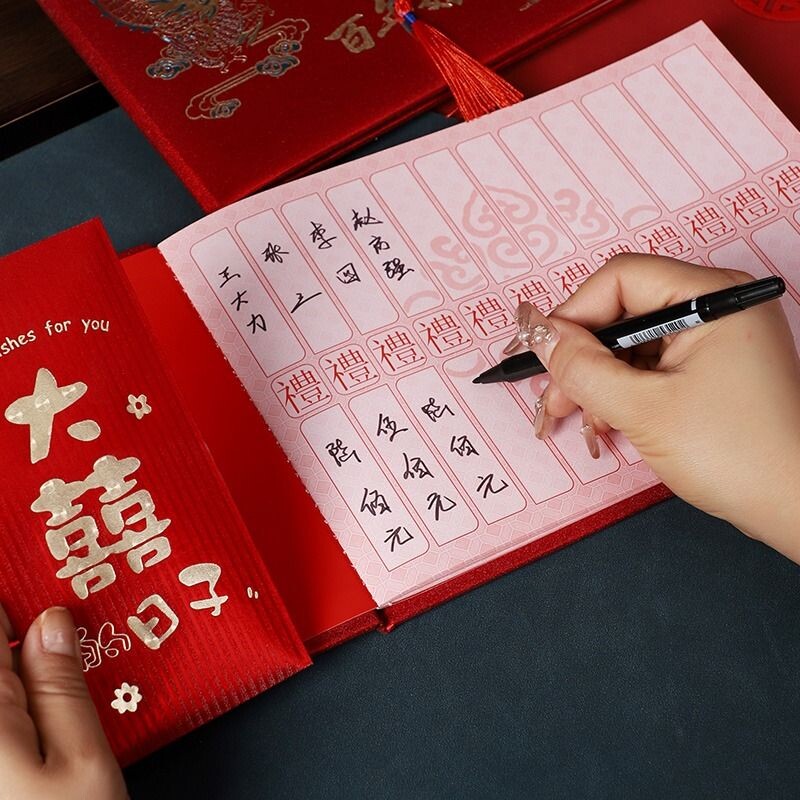 百年
shes for you
大
囍
的日子
王大力
张三
李国
赵 强
禮禮禮禮禮禮禮禮禮禮禮禮
陆佰元
伍佰元
陆佰元